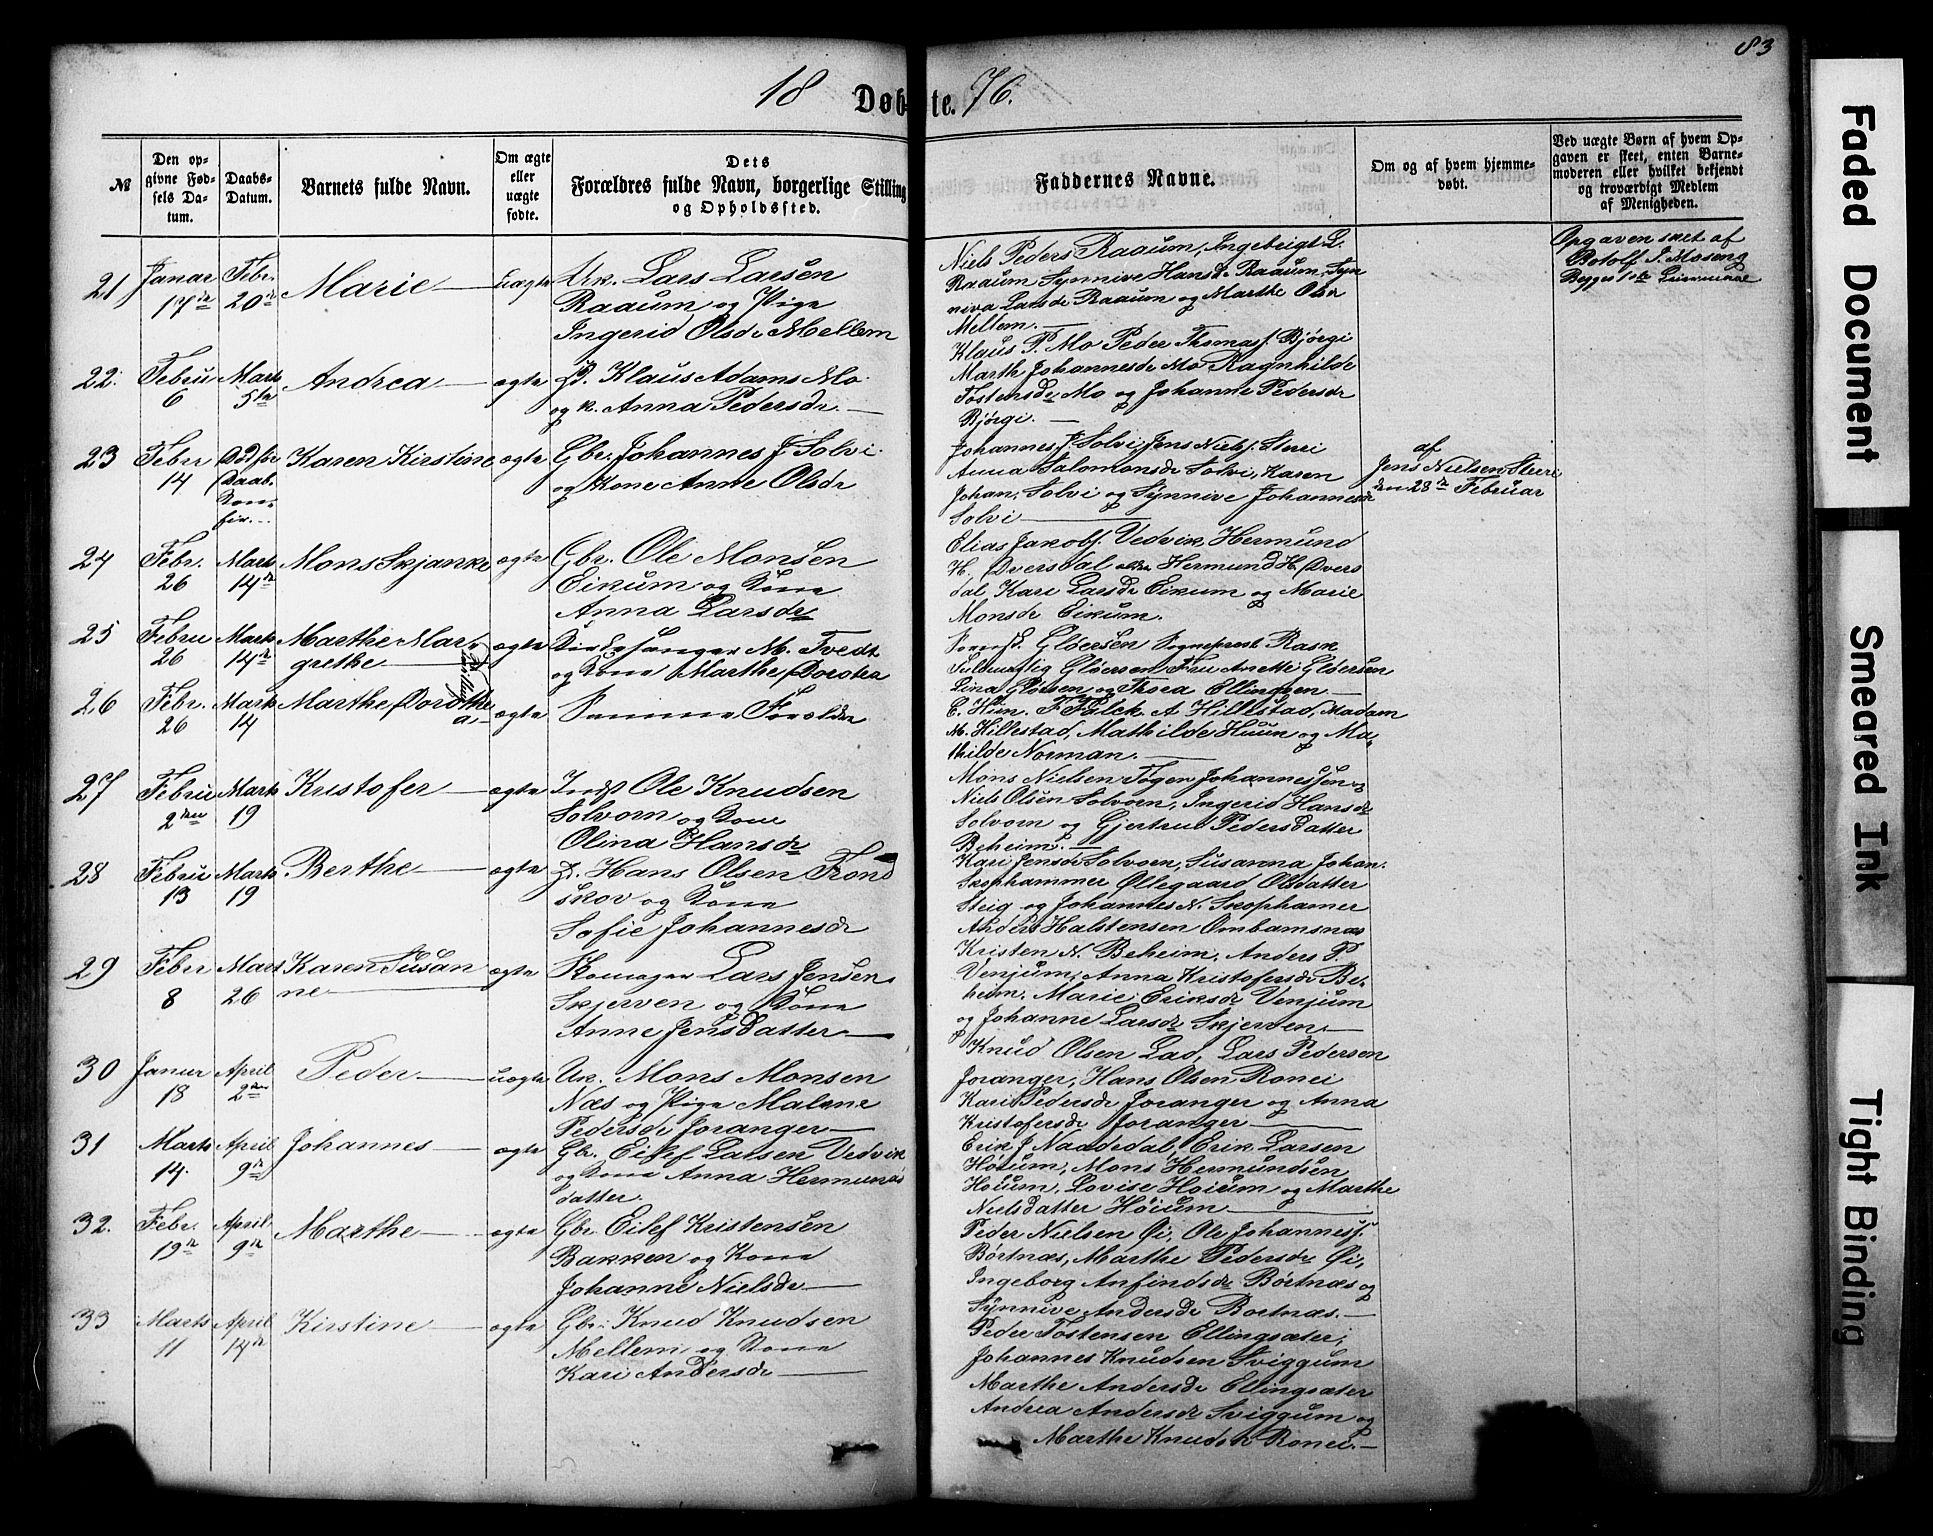 83
18 Døbte. 76.
№
Den op-
givne Fød-
sels Da-
tum.
Daabs-
Datum.
Barnets fulde Navn.
Om ægte
eller
uægte
fødte.
Dets
Forældres fulde Navn, borgerlige Stilling
og Opholdssted.
Faddernes Navne.
Om og af hvem hjemme-
døbt.
Ved uægte Børn af hvem Op-
gaven er skeet, enten Barne-
moderen eller hvilket bekjendt
og troværdigt Medlem
af Menigheden.
21 Januar 17de Febr. 20de Marie uægte Uk. Lars Larsen
Raaum og Pige
Ingerid Olsdr Mellem
Niels Peders Raaum, Ingebrigt L.
Raaum Synnive Hansdr Raaum, Syn
niva Larsdr Raaum og Marthe Olsdr
Mellem.
Opgaven skeet af
Botolf J. Moseng
Begges 1ste Leiermaal
22. Febru 6 Marts 5te Andrea ægte Hd. Klaus Adams Mo
og K. Anna Pedersdr.
Klaus P. Mo Peder Thomass. Bjørgi
Marth Johannesdr Mo Ragnhilde
Tostensdr Mo og Johanne Pedersdr
Bjørgi.
23 Febr 14 Død før Daab. Kon- fir. Karen Kirstine ægte Gbr. Johannes J Solvi
og Kone Anne Olsdr
Johannes J Solvi, Jens Niels. Steri
Anna Salomonsdr Solvi, Karen
Johan. Solvi og Synnive Johannesdr
Solvi
af
Jens Nielsen Steri
den 28de Februar
24 Febr. 26 Marts 14de Mons Skjanke ægte Gbr. Ole Monsen
Eikum og Kone
Anna Larsdr
Elias Jakobs. Vedvik Hermund
H. Dversdal Hermund H. Dvers
dal Kari Larsdr Eikum og Marie
Monsdr Eikum.
25 Febru 26 Marts 14de Marthe Mar-
grethe ægte Kirkesanger M. Tvedt
og Kone Marthe Dorotea
Gløersen Sogneprest Rask
Gløersen Fru Anette Gløersen
Lina Gløersen og Thora Ellingsen
26 Febr. 26 Marts 14 Marthe Dorothe
a ægte Samme Forældre
E. Hiim. F Falck. A Hillestad, Madam
M. Hillestad, Mathilde Huun og Ma-
thilde Norman.
27 Febru 2den Marts 19 Kristofer ægte Inds Ole Knudsen
Solvorn og Kone
Olina Hansdr
Mons Nielsen Tøger Johannessen
Niels Olsen Solvorn, Ingerid Hansdr
Solvorn og Gjertrud Pedersdatter
Beheim.
28 Febru 13 Marts 19 Berthe ægte Hd. Hans Olsen Trond
skov og Kone
Sofie Johannesdr
Kari Jensdr Solvorn, Susanna Johan.
Skophammer Øllegaard Olsdatter
Steig og Johannes N. Skophamer
Anders Halstensen Ombamsnæs
29 Febr 8 Mars 26 Karen Susan
ne ægte Lars Jensen
Skjerven og Kone
Anne Jensdatter
Kristen N. Beheim, Anders P.
Venjum, Anna Kristofersdr Be-
heim. Marie Eriksdr Venjum
og Johanne Larsdr Skjerven.
30 Janur 18 April 2den Peder uægte Uk. Mons Monsen
Næs og Pige Malene
Pedersdr Joranger
Knud Olsen Lad, Lars Pedersen
Joranger, Hans Olsen Ronei
Kari Pedersdr Joranger og Anna
Kristofersdr Joranger
31 Marts 14. April 9de Johannes ægte Gbr. Eilef Larsen Vedvik
og Kone Anna Hermunds
datter.
Erik J Naadedal, Erik Larsen
Høium, Mons Hermundsen
Høium, Lovise Høium og Marthe
Nielsdatter Høium
32. Febr. 19de April 9de Marthe ægte Gbr Eilef Kristensen
Bakken og Kone
Johanne Nielsdr
Peder Nielsen Øi, Ole Johanness.
Børtnæs, Marthe Pedersdr Øi,
Ingeborg Anfindsdr Børtnæs og
Synnive Andersdr Bortnæs.
33 Marts 11 April 14de Kirstine ægte Gbr. Knud Knudsen
Mellem og Kone
Kari Andersdr
Peder Tostensen Ellingsæter,
Johannes Knudsen Sviggum
Marthe Andersdr Ellingsæter
Andrea Andersdr Sviggum og
Marthe Knudsdr Ronei.
Faded Document
Smeared Ink
Tight Binding